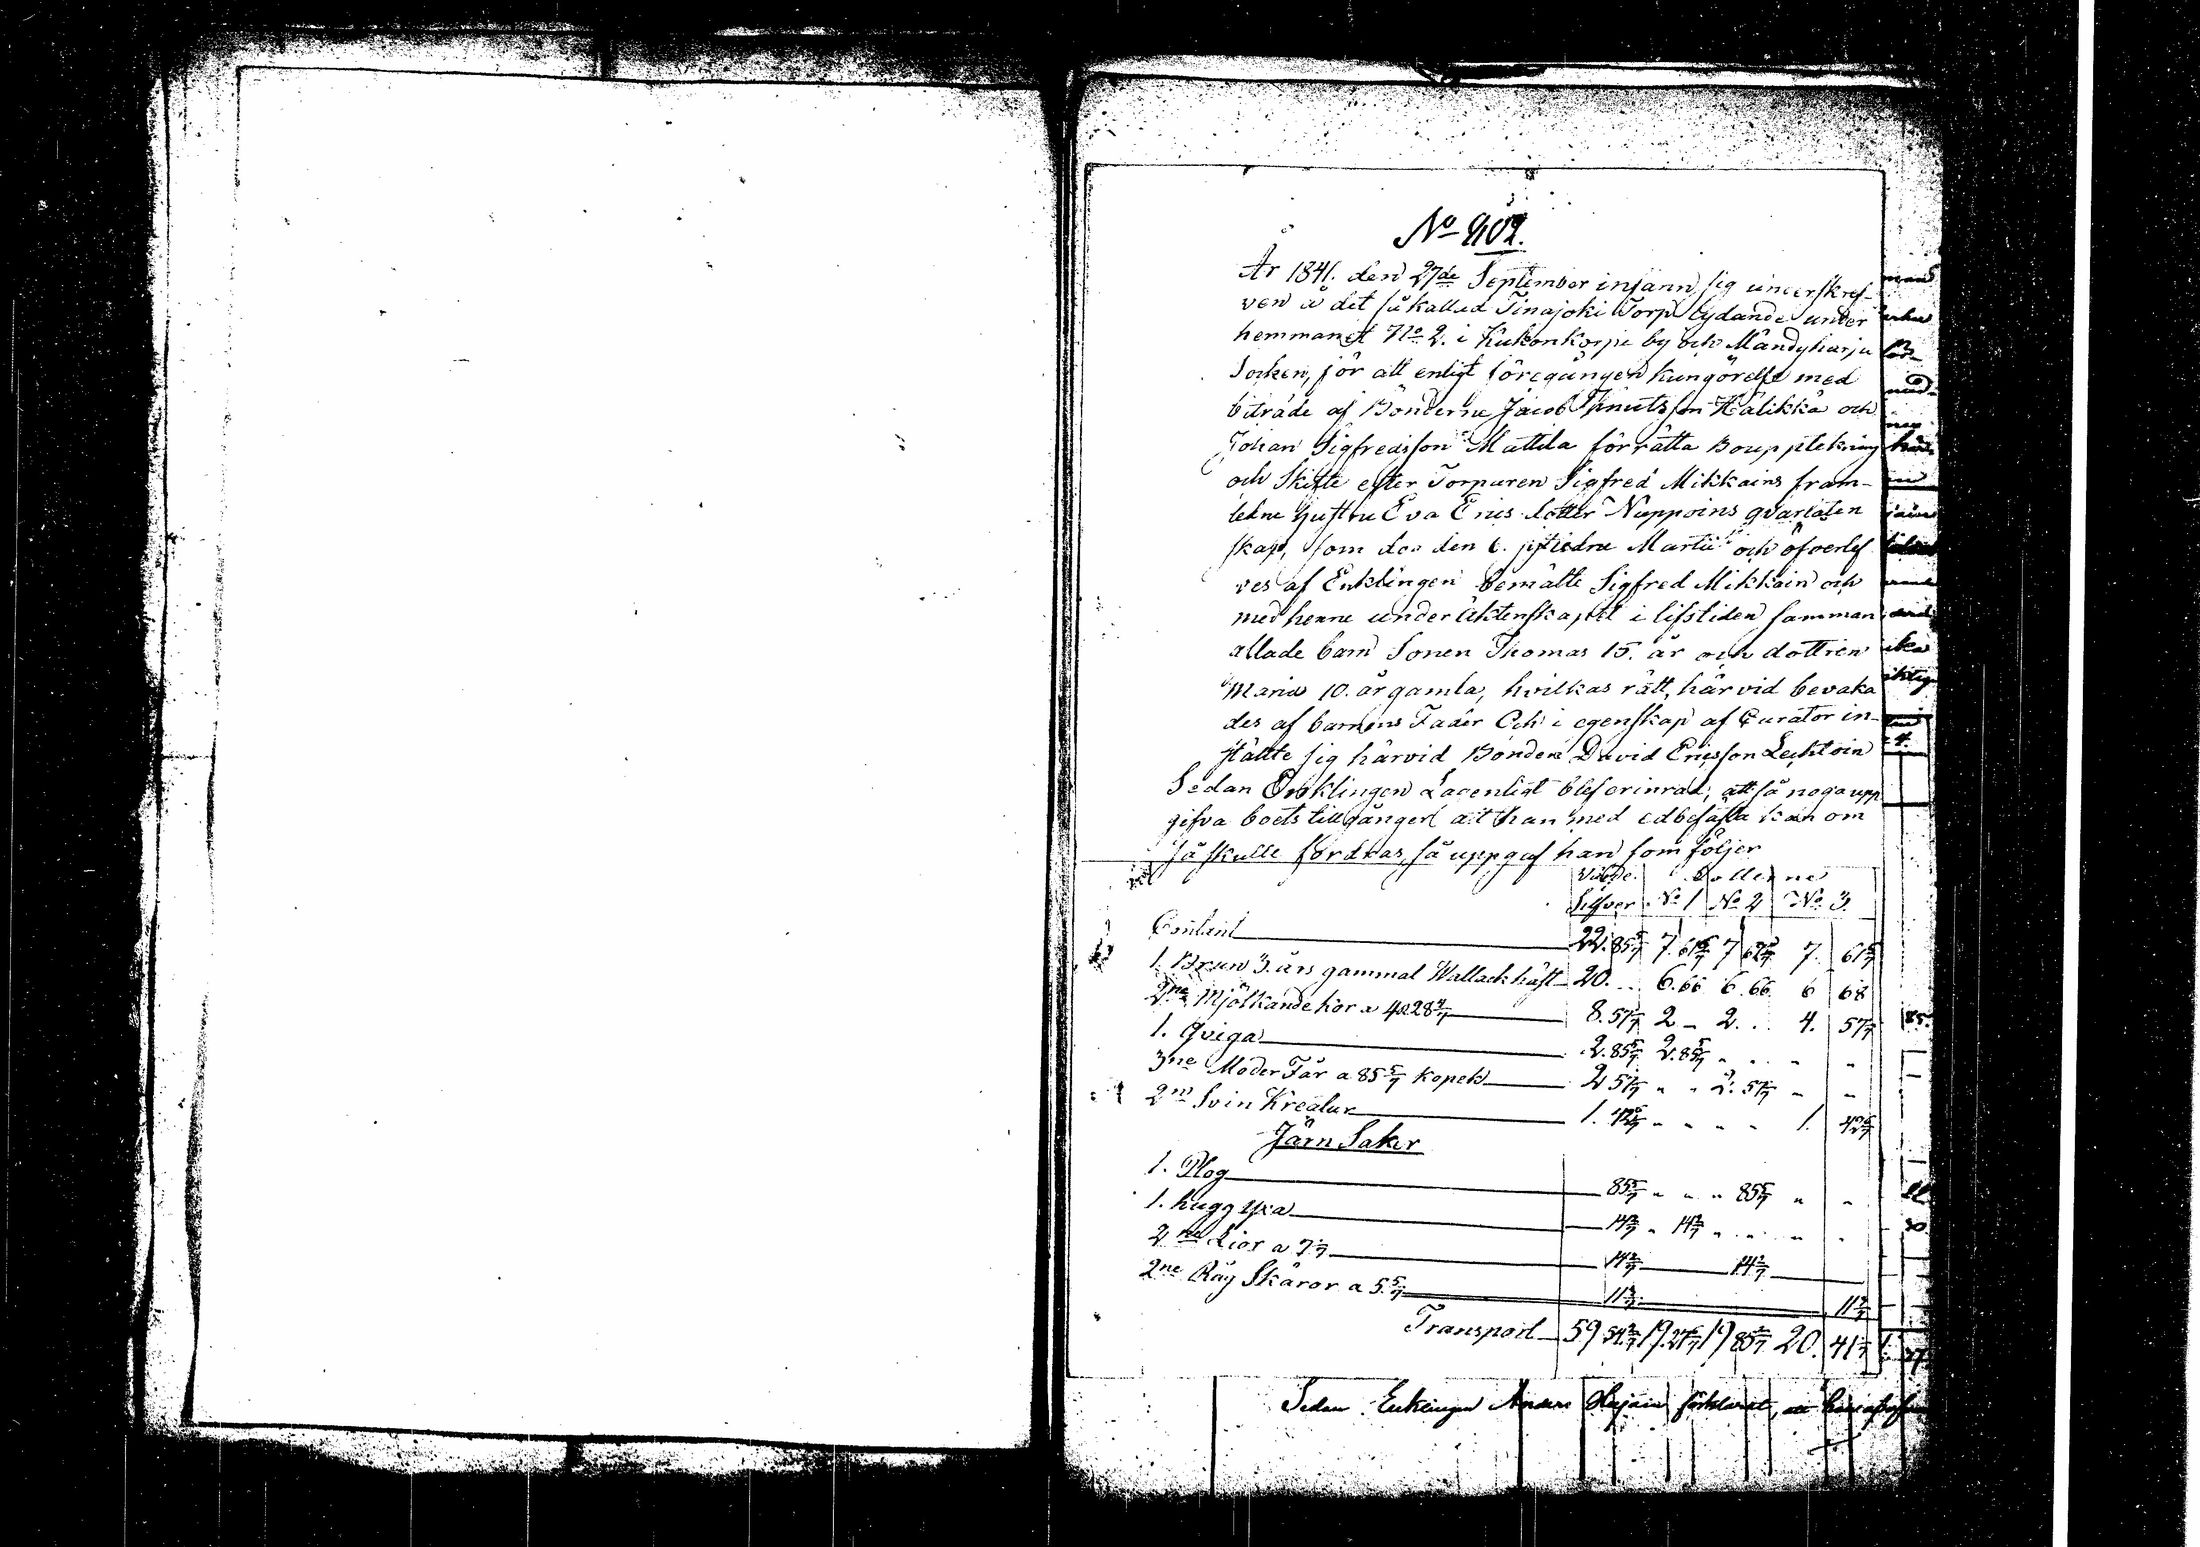 No 402.
År 1841. den 27de September infann sig underskref-
ven å det så kallad Tinajoki Torp lydande under
hemmanet No 2. i Kukonkorpi by och Mändyharju
Socken, för att enligt föregången kungörelse med
biträde af Bönderne Jacob Knutsson Hälikkä och
Johan Sigfredsson Mattila förrätta Boupptekning
och Skifte efter Torparen Sigfred Mikkains fram-
ledne hustru Eva Erics dotter Nuppoins qvarlåten
skap, som dog den 6. sistledne Martii och öfverlef
ves af Enklingen bemälte Sigfred Mikkain och
med henne under äktenskapet i lifstiden samman
aflade barn Sonen Thomas 15. år och dottren
Maria 10. år gamla, hvilkas rätt, härvid bevaka
des af barnens Fader Och i egenskap af Curator in-
stälte sig härvid Bonden David Ericsson Lechtoin
Sedan Enklingen Lagenligt blef erinrad, att så noga upp
gifva boets tillgånger att han med ed befästa kan om
så skulle fordras, så uppgaf han som följer
Värde. Lotterne
Silfver No 1 No 2 No 3.
Contant 22. 85 5/7 7. 61 6/7 7 62 2/7 7. 61 5/7
1. Brun 3. års gammal Wallack häst 20. . . 6. 66 6. 66. 6 68
2ne Mjölkande kor a 4 R 28 4/7 8. 57 1/7 2 – 2. . . 4. 57 1/7
1. Qviga 2. 85 5/7 2. 85 5/7 " . . " "
3ne Moder Får a 85 5/7 kopek 2 57 1/7 " " 2. 57 1/7 " "
2ne Svin Kreatur 1. 42 6/7 " " " " 1. 42 6/7
Järn Saker
1. Plog 85 5/7 " " " 85 5/7 " "
1. hugg yxa 14 2/7 " 14 2/7 " " " "
2ne Liar a 7 1/7 14 2/7 14 2/7
2ne Råg Skäror a 5 5/7 11 3/7 11 3/7
Transport 59 54 2/7 19. 27 6/7 19 85 2/7 20. 41 1/7
Sedan Enklingen Anders förklarat, att